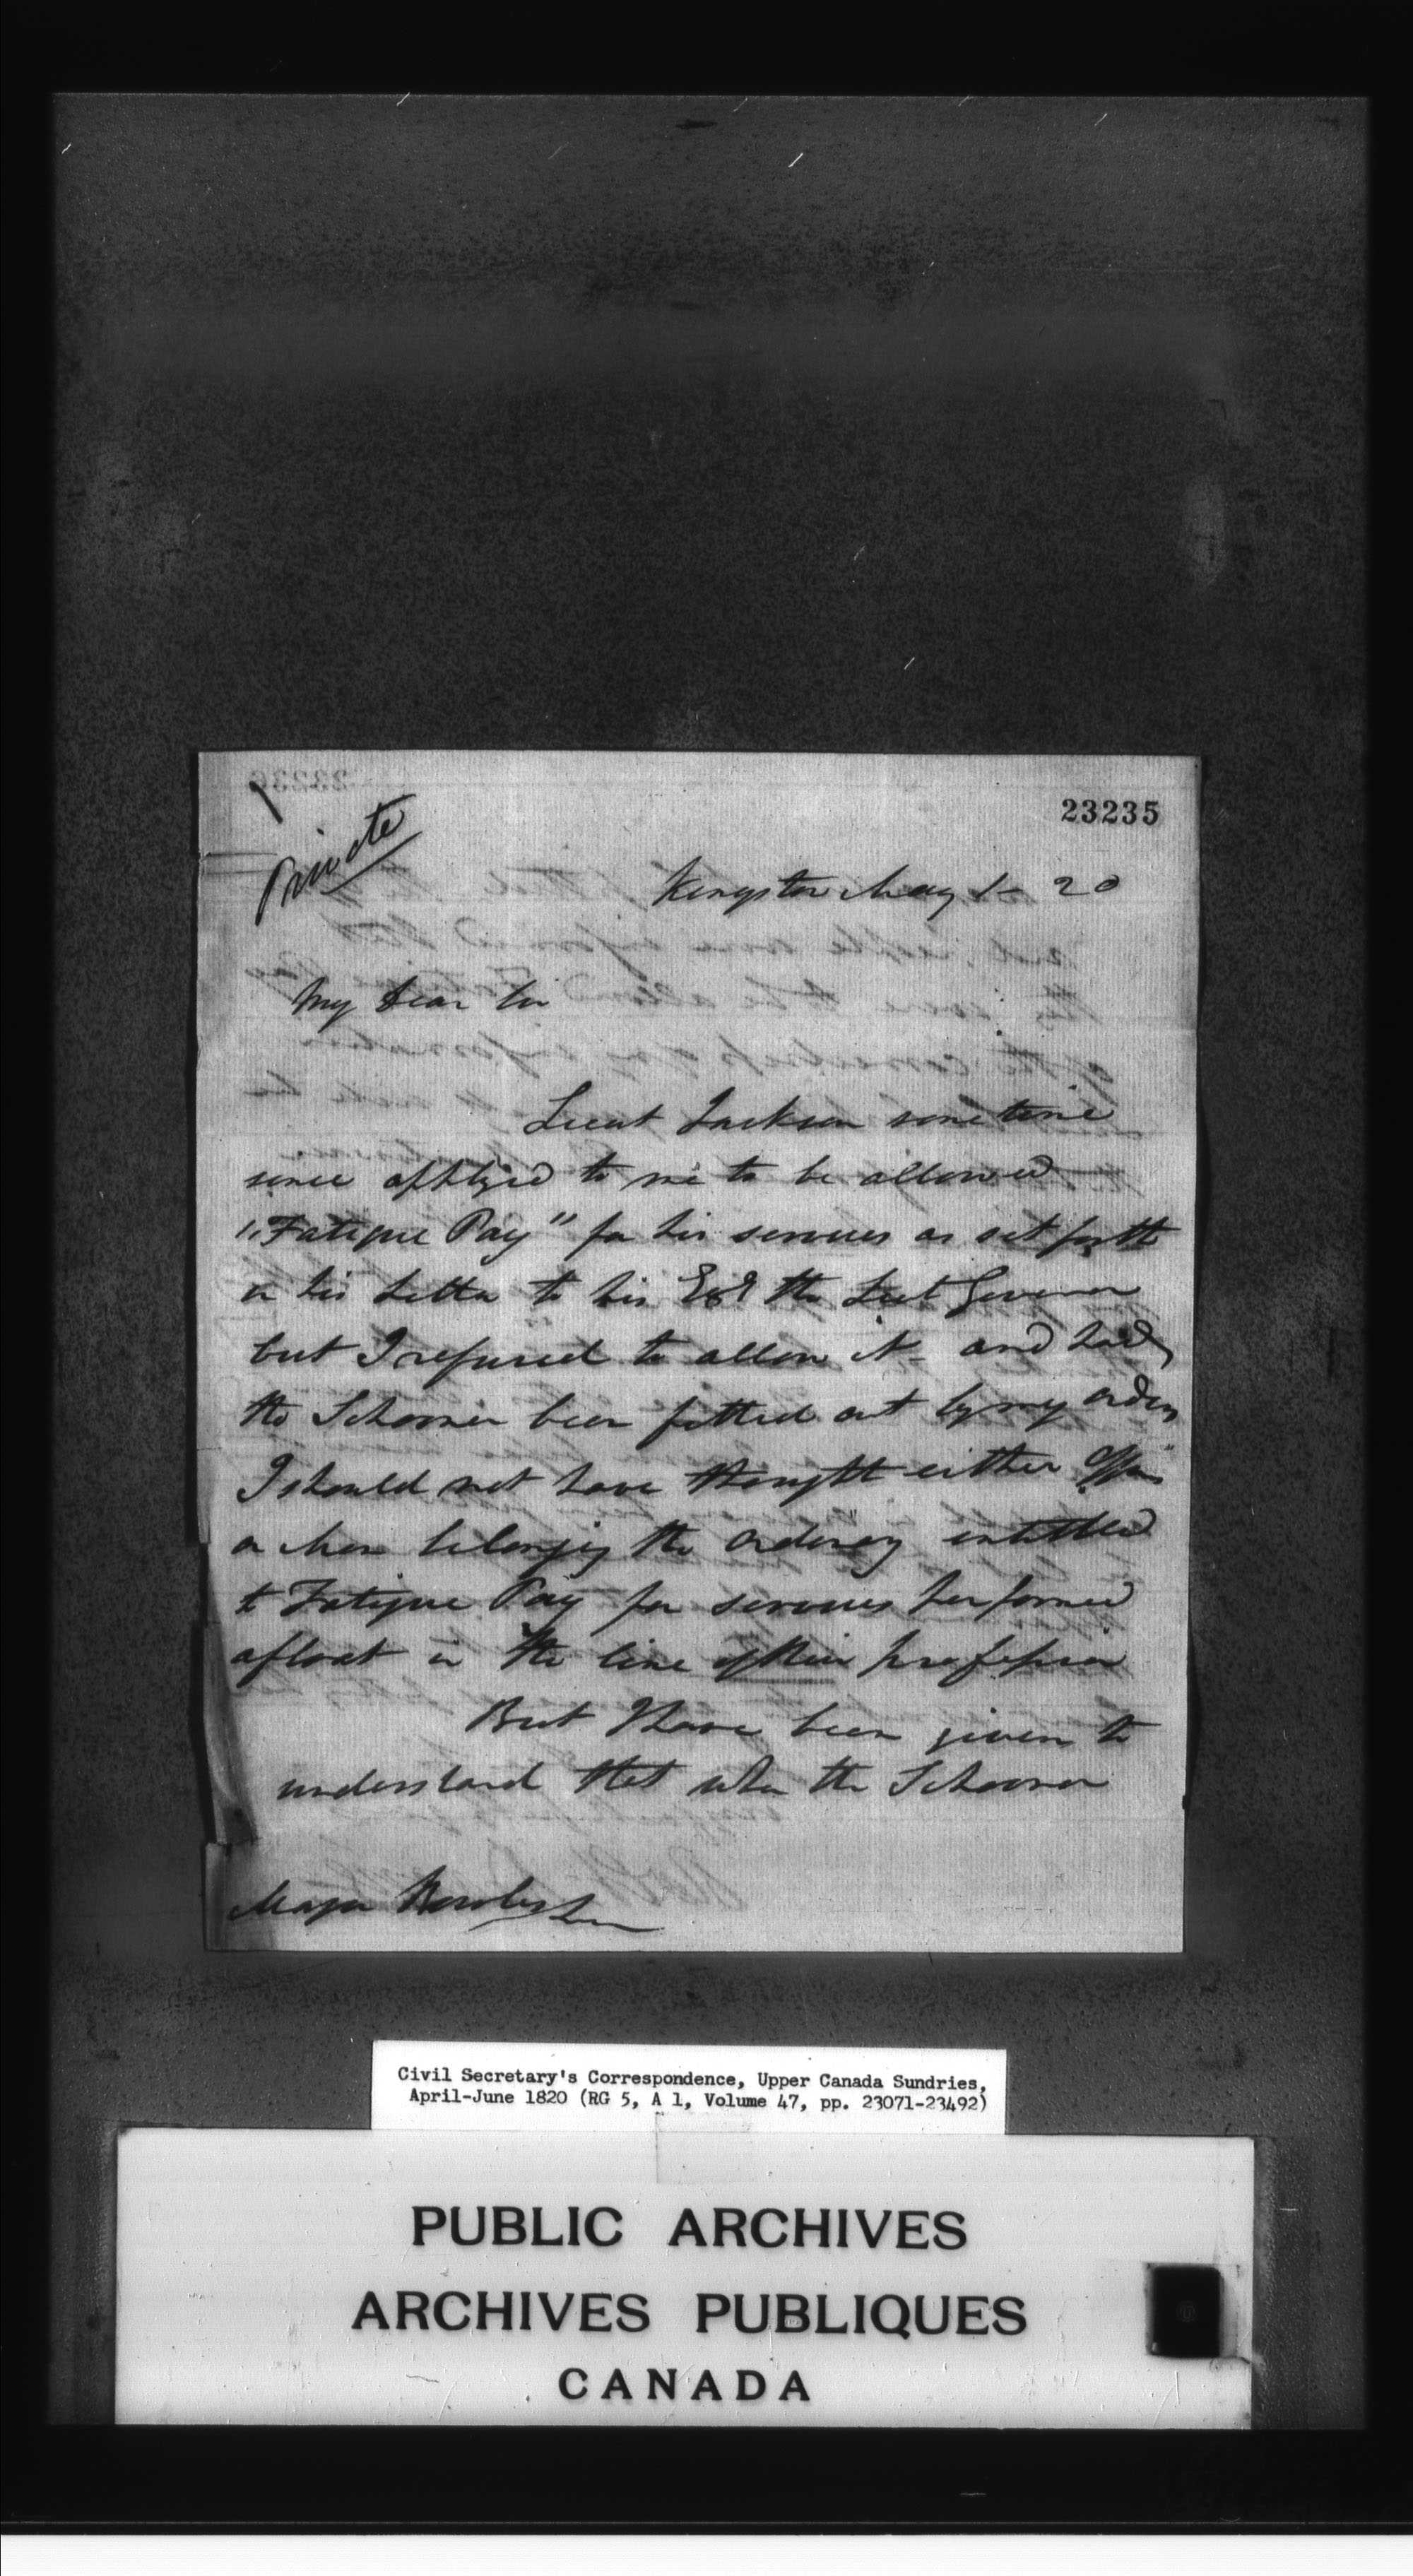 23235
Private
Kingston May 1- 20
My dear Sir
Lieut Jackson some time
since applyed to me to be allowed
"Fatigue Pay" for his services as set forth
in his Letter to his Ex the Lieut Governor
but I refused to allow it - and had
the Schooner been fitted out by my orders
I should not have thought either
or Men belonging the ordinary entitled
to Fatigue Pay for services performed
afloat in the line of their profession
But I have been given to
understand that when the Schooner
Major
Civil Secretary's Correspondence, Upper Canada Sundries,
April-June 1820 (RG 5, A 1, Volume 47, pp. 23071-23492)
PUBLIC ARCHIVES
ARCHIVES PUBLIQUES
CANADA